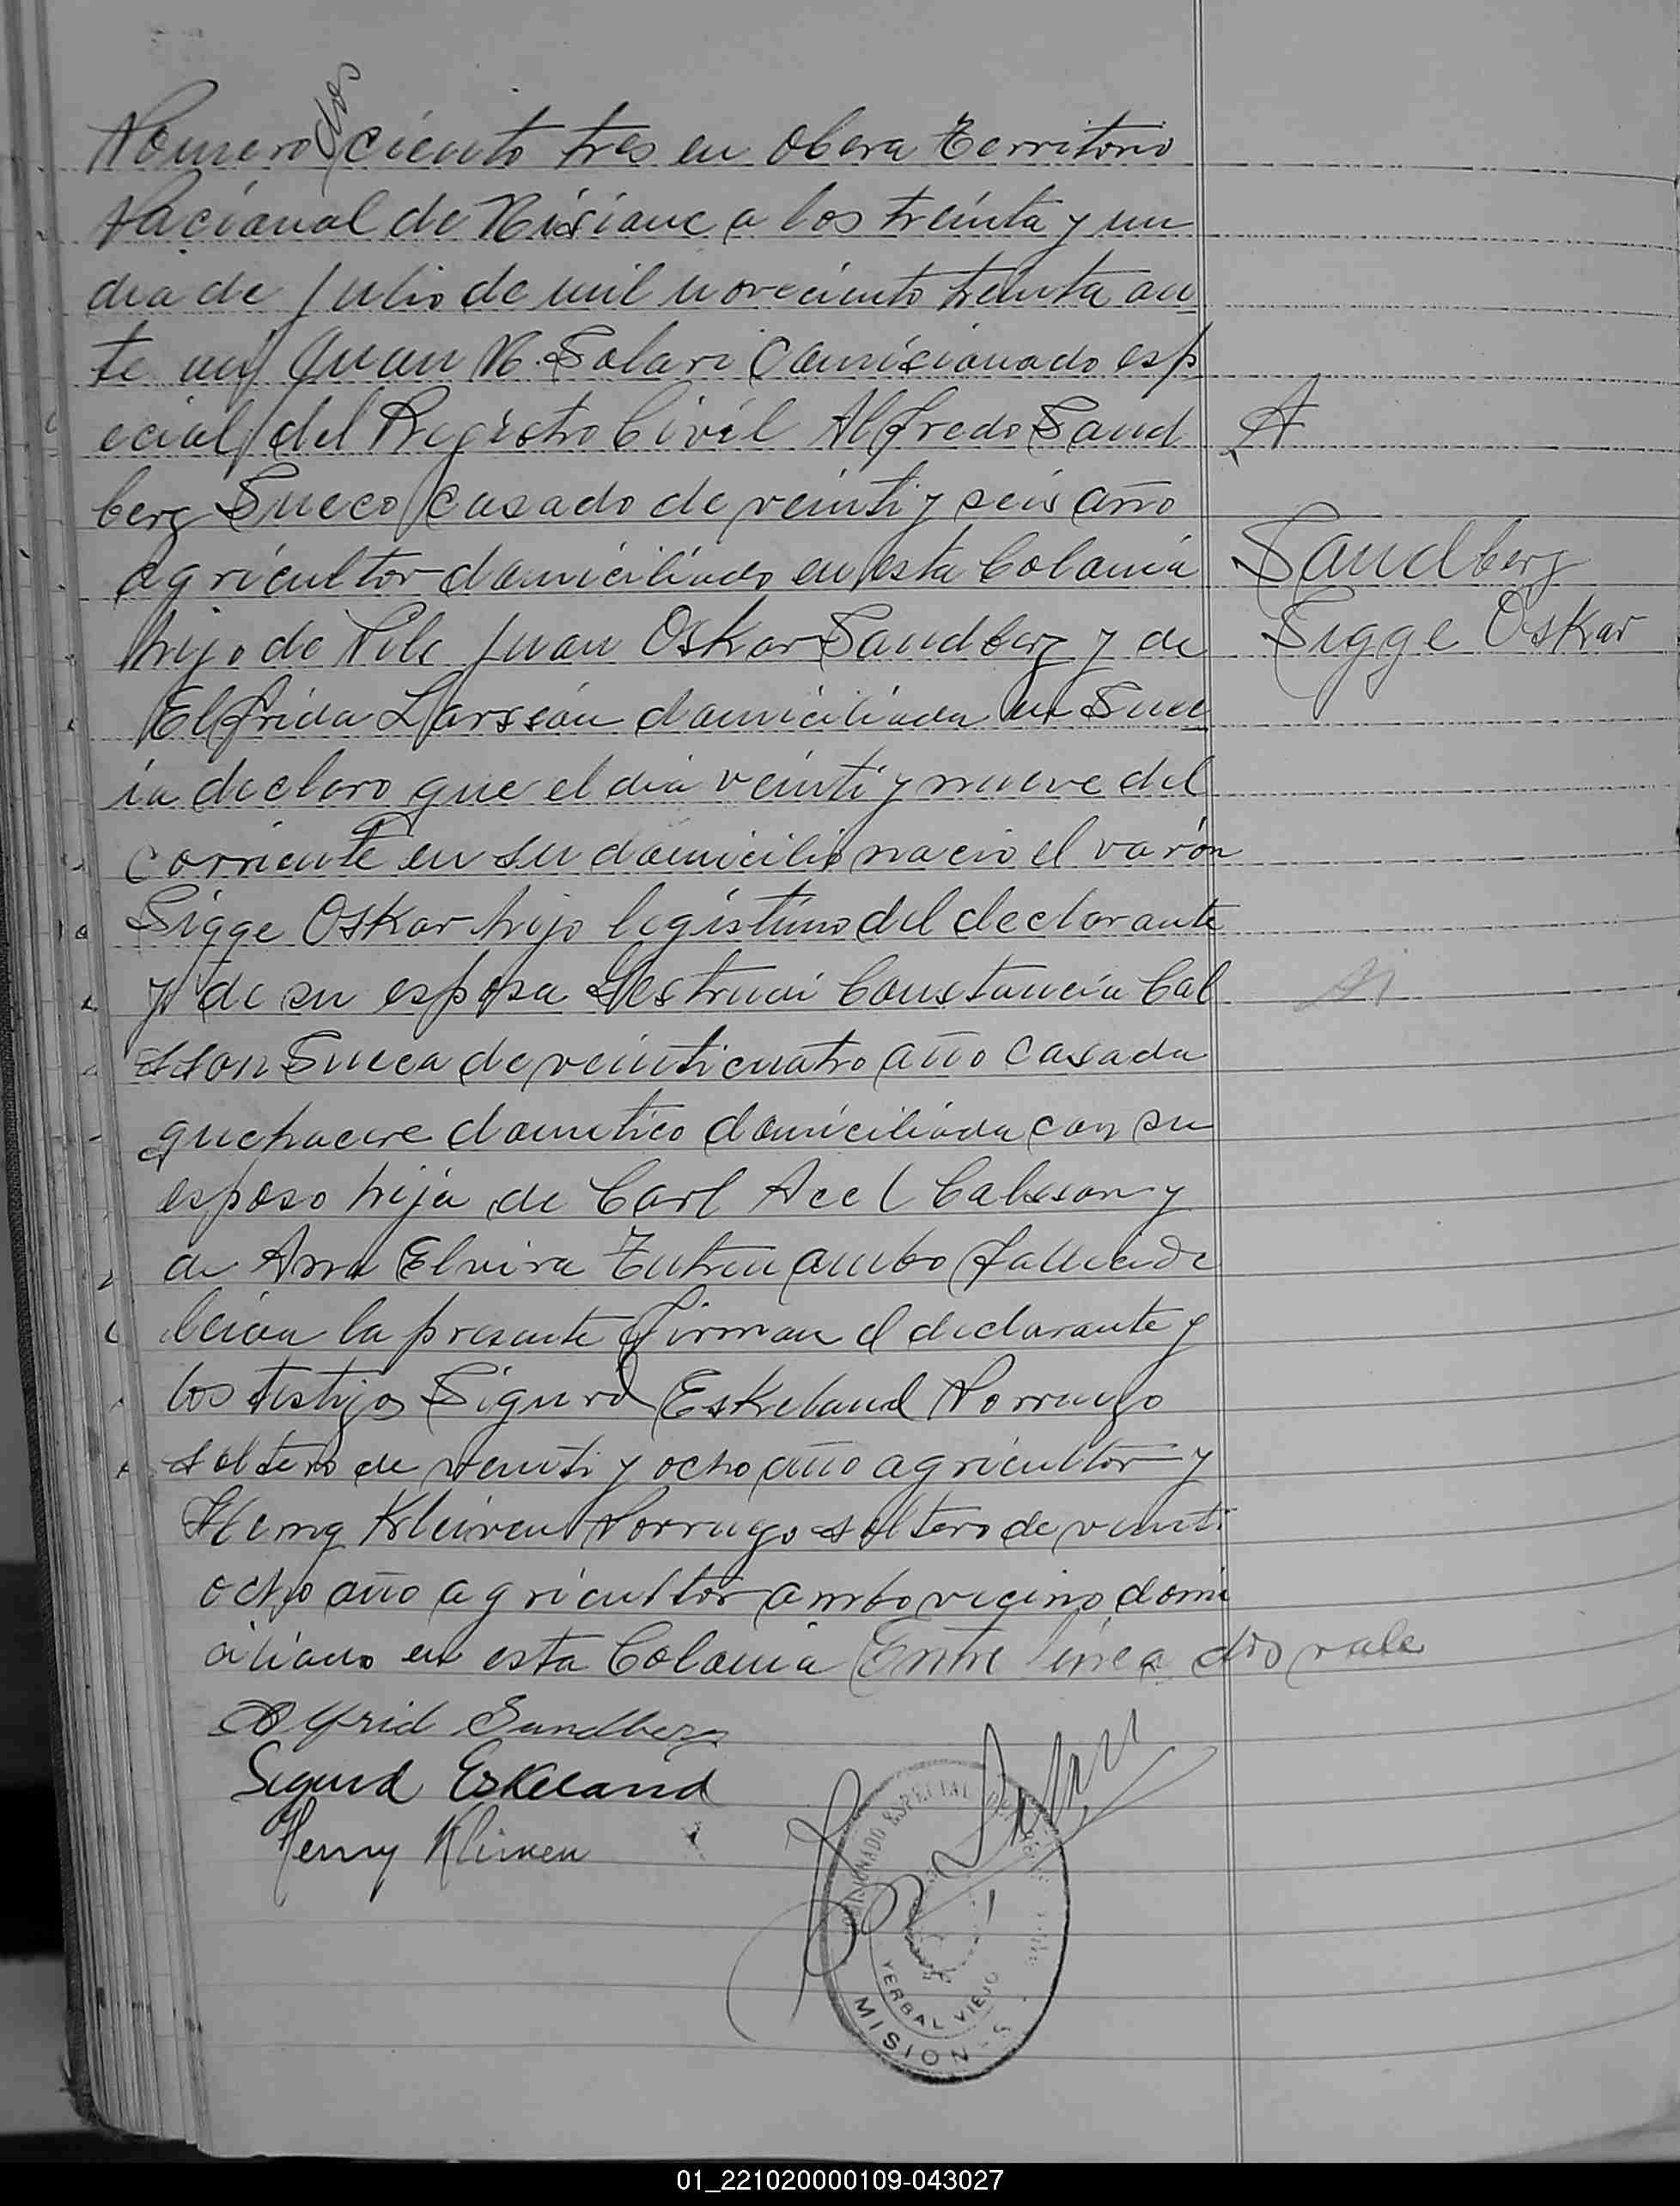 dos
Nomero ciento tres en Obera Territorio
Nacional de Misione a los treinta y un
dia de Julio de mil noveciento treinta an
te mi Juan M. Solari Comisionado esp
ecial del Registro Civil Alfredo Sand
A
berg Sueco casado de veinti y seis año
agricultor domiciliado en esta Colonia
Sandberg
hijo de Nils Juan Oskar Sandberg y de
Sigge Oskar
Elfrida Larsson domiciliada en Suec
ia declaro que el dia veinti y nueve del
corriente en su domicilio nacio el varón
Sigge Oskar hijo legistimo del declarante
y de su esposa Constancia Cal
sson Sueca de veinticuatro año casada
quehacere dometico domiciliada con su
esposo hija de Carl Acel Calsson y
de Ana Elvira ambo
la presente firman el declarante y
los testigos Sigurd Eskeland Norruego
soltero de veinti y ocho año agricultor y
Henry Kleiven Norruego soltero de veinti
ocho año agricultor ambo vecino domi
ciliado en esta Colonia Entre linea dos vale
Alfrid Sandberg
Sigurd Eskeland
Henry Kleiven
COMISIONADO ESPECIAL
YERBAL VIEJO
MISIONES
01_221020000109-043027